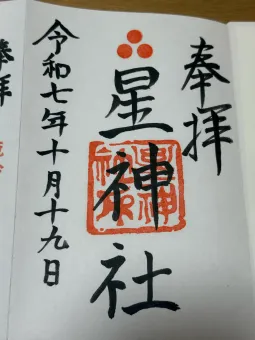 奉拝
星神社
令和七年十月十九日
奉拝